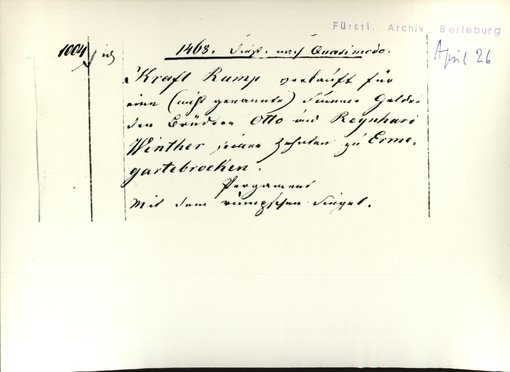 Fürstl. Archiv Berleburg
1004
1468. Dinst. nach Quasimodo.
April 26
Kraft Rump verkauft für
eine (nicht genannte) Summe Geldes
den Brüdern Otto und Reynhard
Winther seinen Zehnten zu Erme-
gartebrocken.
Pergament
Mit dem rumpschen Siegel.